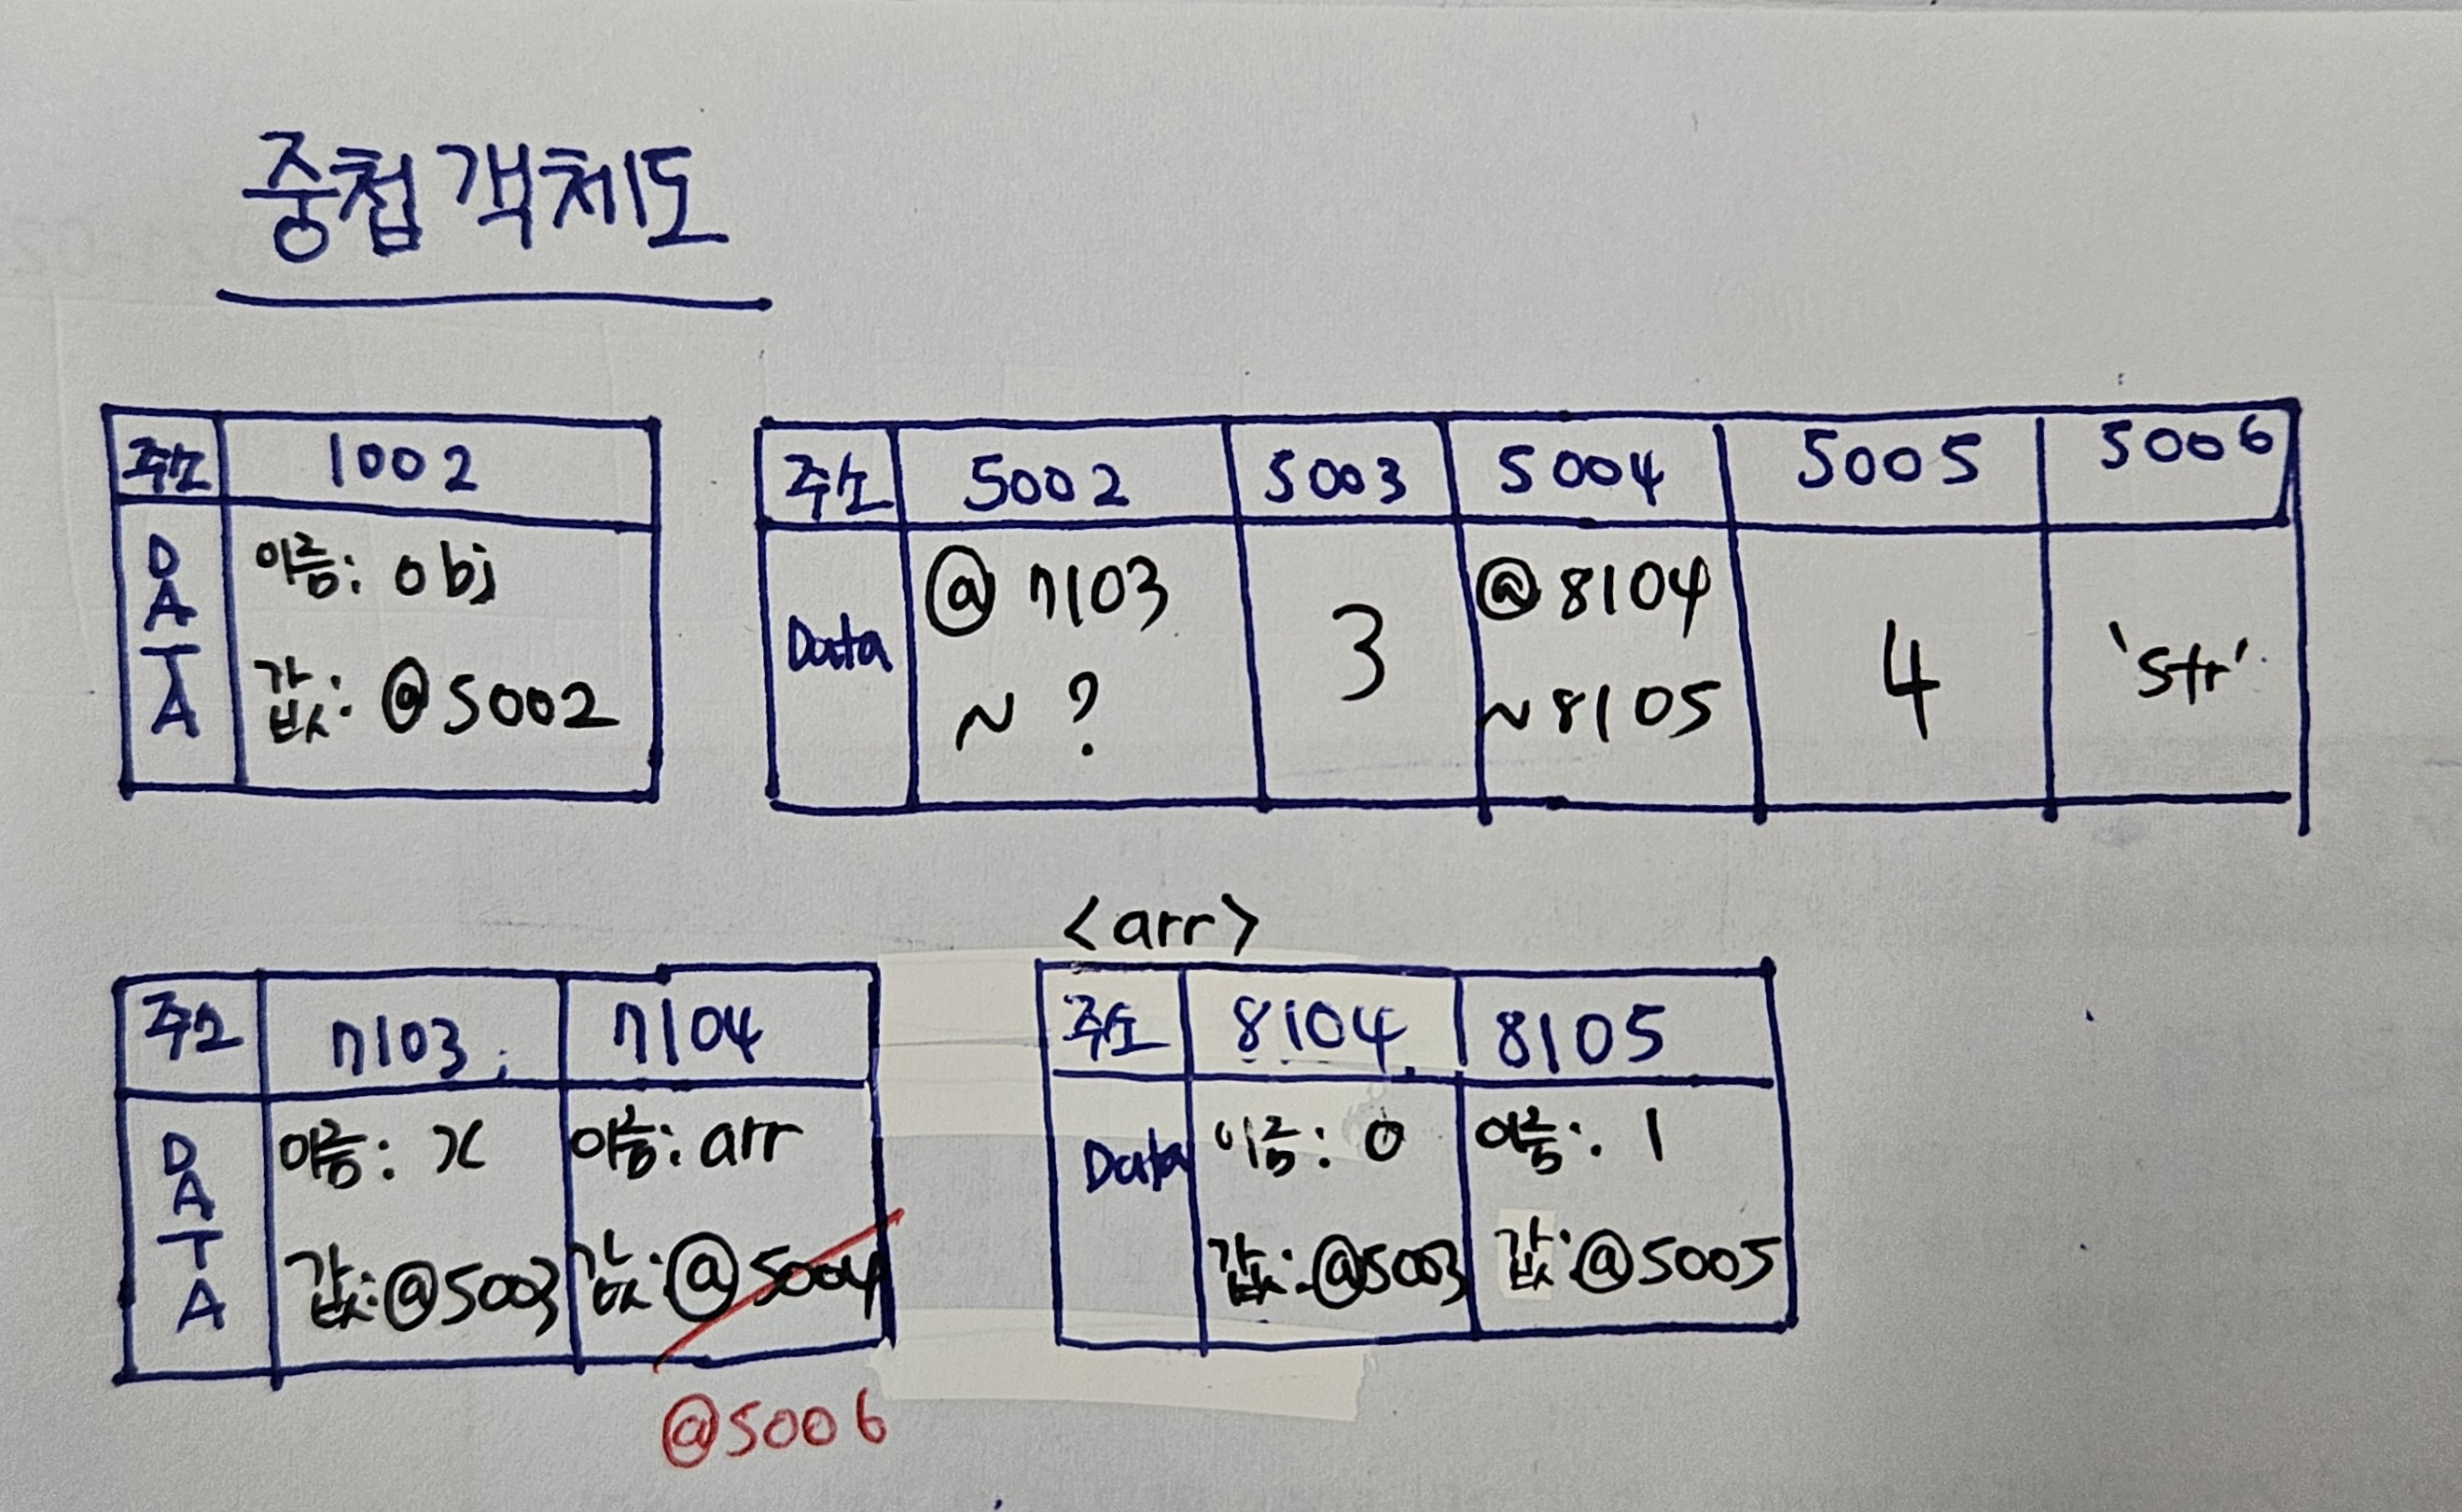 중첩 객체도
주소 1002
DATA 이름: obj
값: @5002
주소 5002 5003 5004 5005 5006
Data @7103 ~ ? 3 @8104 ~8105 4 'str'
주소 7103 7104
DATA 이름: x 이름: arr
값: @5003 값: @5004
@5006
<arr>
주소 8104 8105
Data 이름: 0 이름: 1
값: @5003 값: @5005